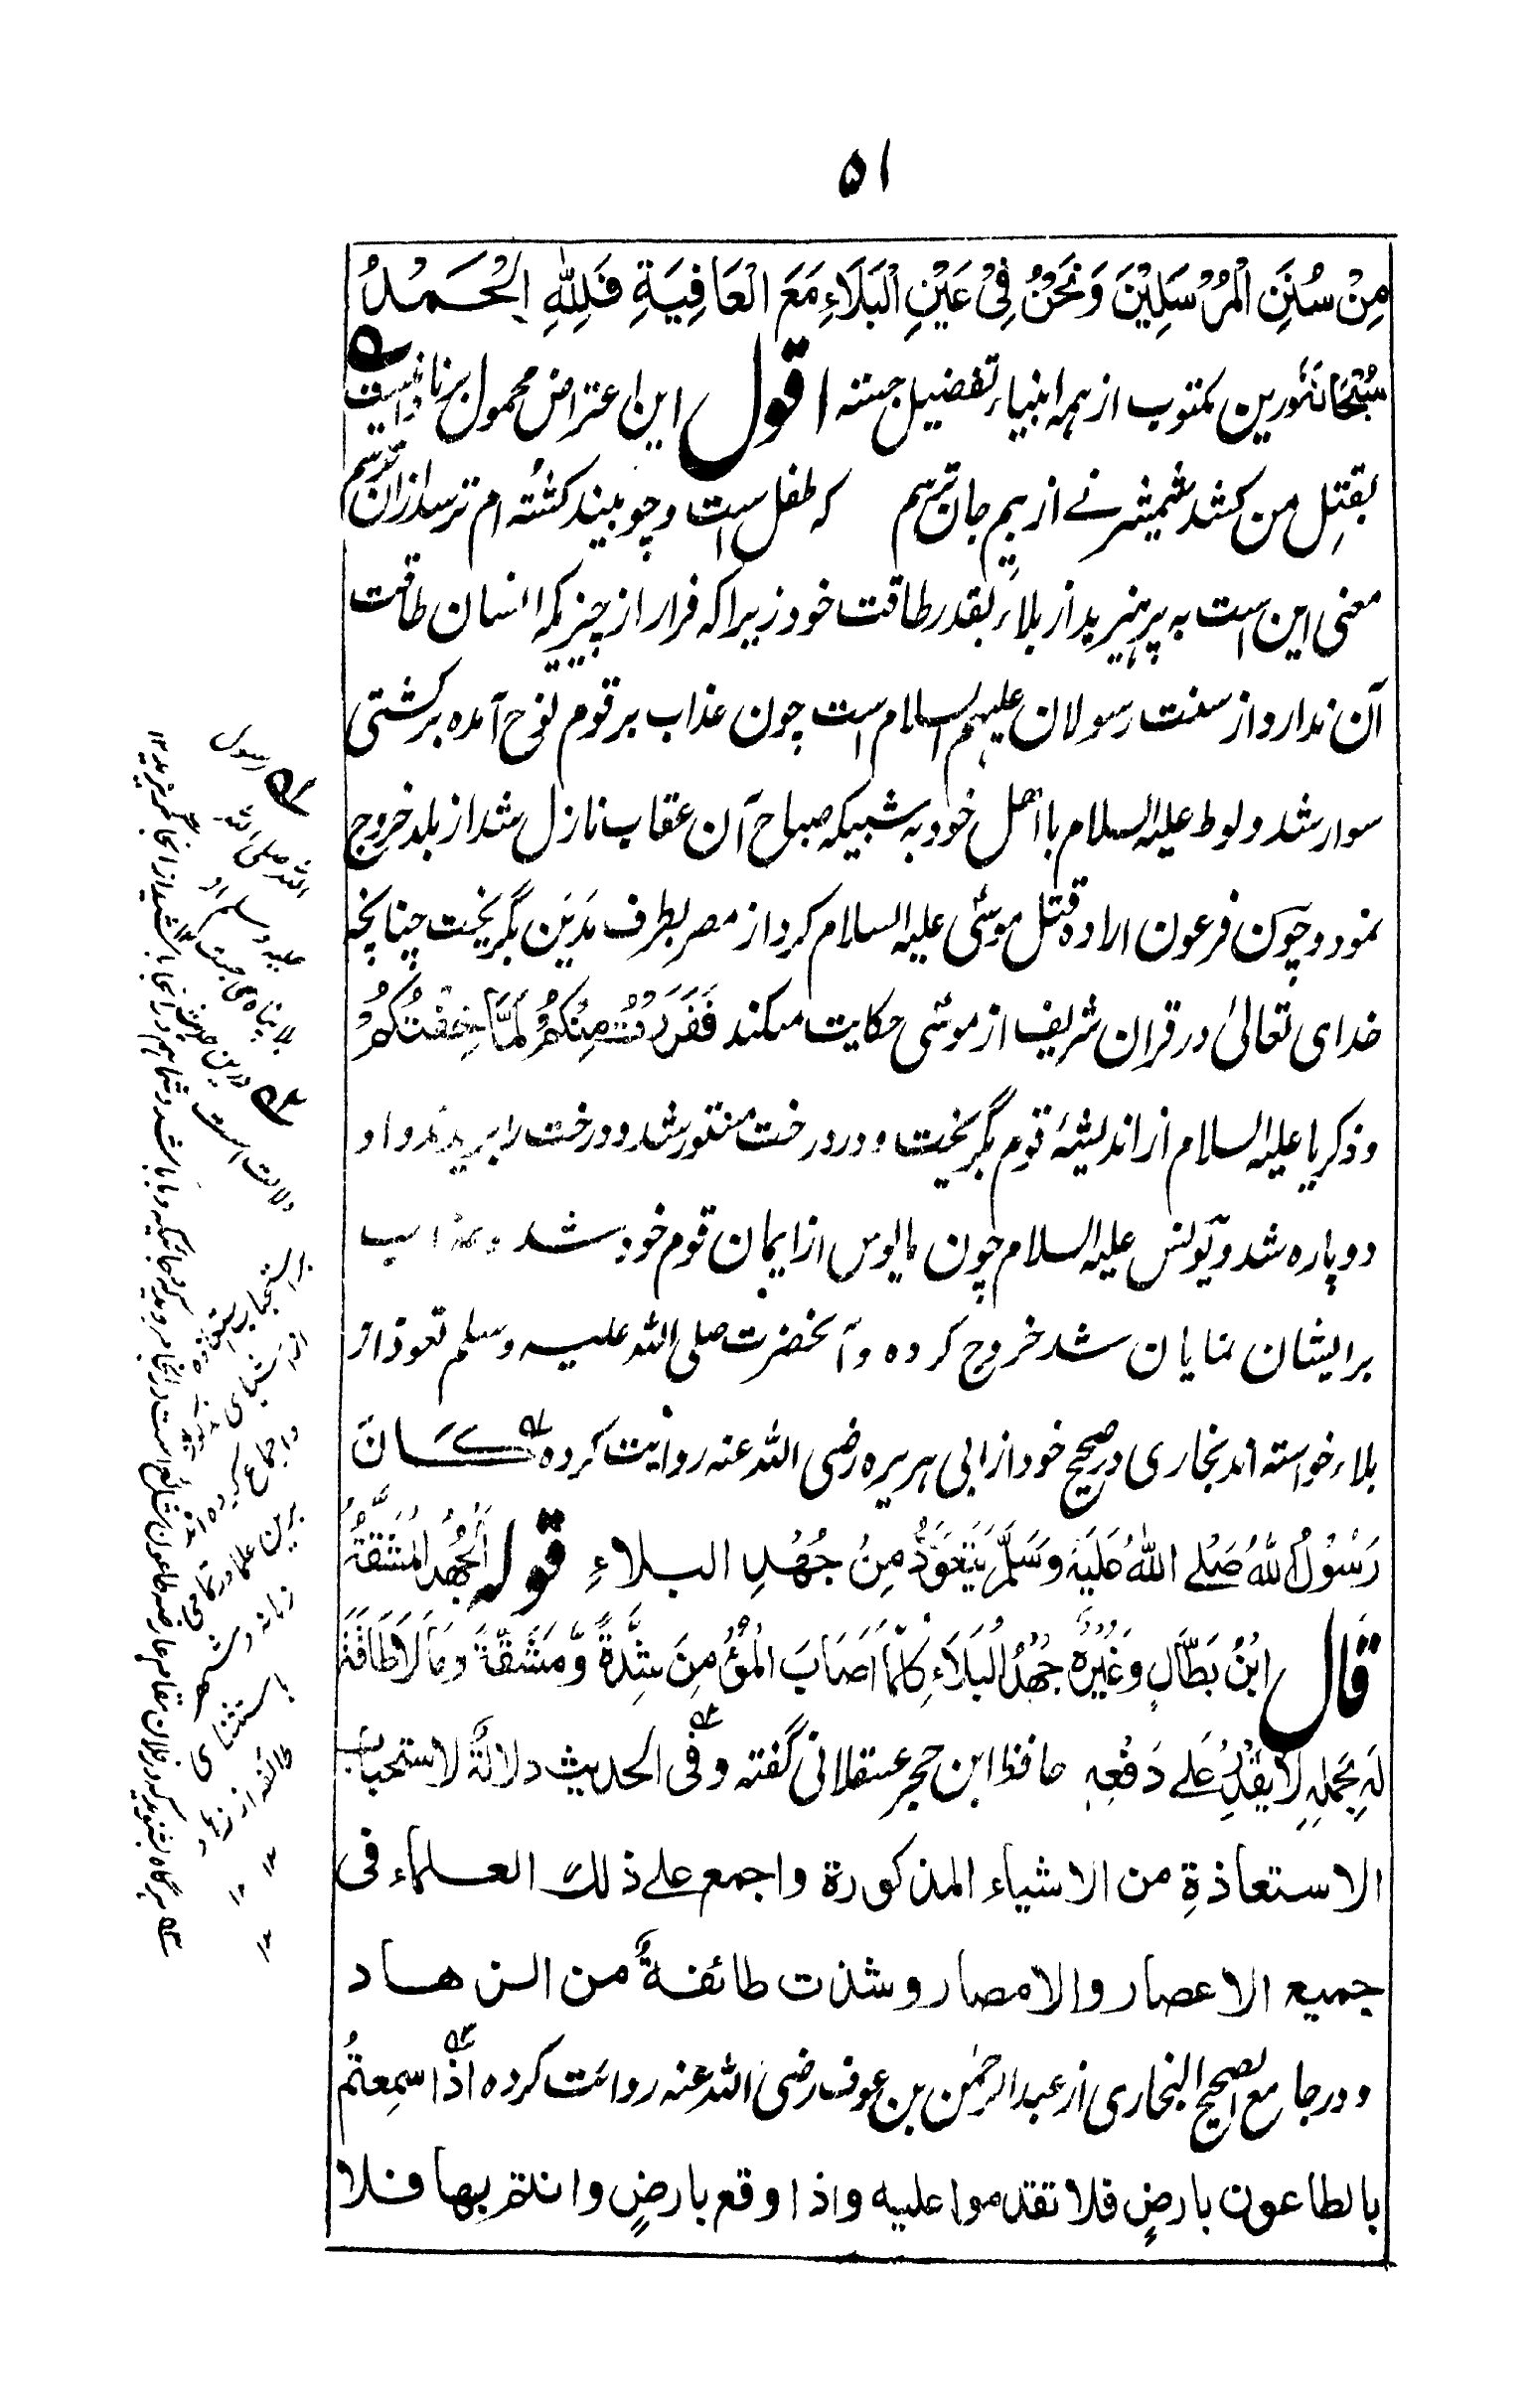 ۵۱
مِنْ سُنَنِ الْمُرْسَلِيْنَ وَنَحْنُ فِيْ عَيْنِ الْبَلَاءِ مَعَ الْعَافِيَةِ فَلِلّٰهِ الْحَمْدُ
سُبْحَانَهٗ درین مکتوب از ہمہ انبیاء تفضیل جستہ اقول این اعتراض محمول بر نادانیست
بقتلِ من کشد شمشیر نے از بیم جان ترسم کہ طفل است و چو بیند کشتہ ام ترسد ازان ترسم
معنی این است بہ پرہیزید از بلاء بقدر طاقت خود زیراکہ فرار از چیزیکہ انسان طاقت
آن ندارد از سنت رسولان علیہم السلام است چون عذاب بر قوم نوح آمدہ بر کشتی
سوار شد و لوط علیہ السلام با اہل خود بہ شبیکہ صباح آن عقاب نازل شد از بلد خروج
نمود و چون فرعون ارادہ قتل موسٰی علیہ السلام کرد از مصر بطرف مَدیَن بگریخت چنانچہ
خدای تعالیٰ در قران شریف از موسٰی حکایت میکند فَفَرَرْتُ مِنْكُمْ لَمَّا خِفْتُكُمْ
و ذکریا علیہ السلام از اندیشۂ قوم بگریخت و در درخت مستور شد و درخت را بریدند و او
دو پارہ شد و یونس علیہ السلام چون مایوس از ایمان قوم خود شد و عذاب
بر ایشان نمایان شد خروج کردہ و آنحضرت صلی اللہ علیہ وسلم تعوذ از
بلاء خواستہ اند بخاری در صحیح خود از ابی ہریرہ رضی اللہ عنہ روایت کردہ كَانَ
رَسُوْلُ اللّٰهِ صَلَّے اللّٰهُ عَلَيْهِ وَسَلَّمَ يَتَعَوَّذُ مِنْ جُهْدِ البلاءِ قوله اَلْجُهْدُ الْمَشَقَّةُ
قال ابْنُ بَطَّالٍ وَغَيْرُهٗ جُهْدُ الْبَلَاءِ كُلُّمَا اَصَابَ الْمَرْءُ مِنَ شِدَّةً وَّ مَشَقَّةً وَمَا لَا طَاقَةَ
لَهٗ بِحَمْلِهٖ لَا يَقْدِرُ عَلٰے دَفْعِهٖ حافظ ابن حجر عسقلانی گفتہ و فی الحديث دلالةٌ لاستحباب
الاستعاذةِ من الاشياء المذكورة واجمع علے ذلك العلماء فی
جميع الاعصار والامصار وشذت طائفةٌ من الزهاد
و در جامع الصحیح البخاری از عبدالرحمٰن بن عوف رضی اللہ عنہ روائت کردہ اذا سمعتمُ
بالطاعون بارضٍ فلا تقدموا عليه واذا وقع بارضٍ وانتم بها فلا
رسول
اللہ صلی اللہ
علیہ وسلم از
بلا پناہ می جست ۱۲
درین حدیث
دلالت است
بر استحباب
از اشیای
و اجماع کردہ اند
برین علما در تمامی
زمانہ و شہر
باستثنای
طائفہ از زہاد